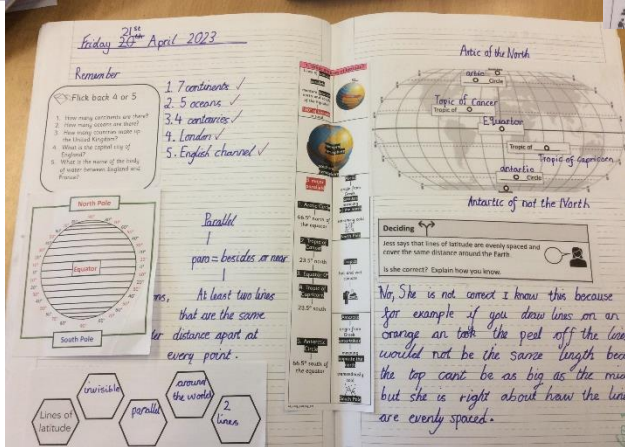 Friday 20th 21st April 2023
Remember
Flick back 4 or 5
1. How many continents are there?
2. How many oceans are there?
3. How many countries make up
the United Kingdom?
4. What is the capital city of
England?
5. What is the name of the body
of water between England and
France?
1. 7 continents ✓
2. 5 oceans ✓
3. 4 contairies ✓
4. London ✓
5. English channel ✓
North Pole
Equator
South Pole
Parallel
para = besides or near
At least two lines
that are the same
distance apart at
every point.
Lines of
latitude
invisible
parallel
around
the world
2
lines
66.5° north of
the equator
23.5° north
23.5° south
66.5° south of
the equator
Artic of the North
artic
Circle
Topic of Cancer
Tropic of
Equator
Tropic of
Tropic of Capricorn
antartic
Circle
Antartic of not the North
Deciding
Jess says that lines of latitude are evenly spaced and
cover the same distance around the Earth.
Is she correct? Explain how you know.
No, She is not correct I know this because
for example if you draw lines on an
orange an took the peel off the line
would not be the same length
the top cant be as big as the
but she is right about how the
are evenly spaced.